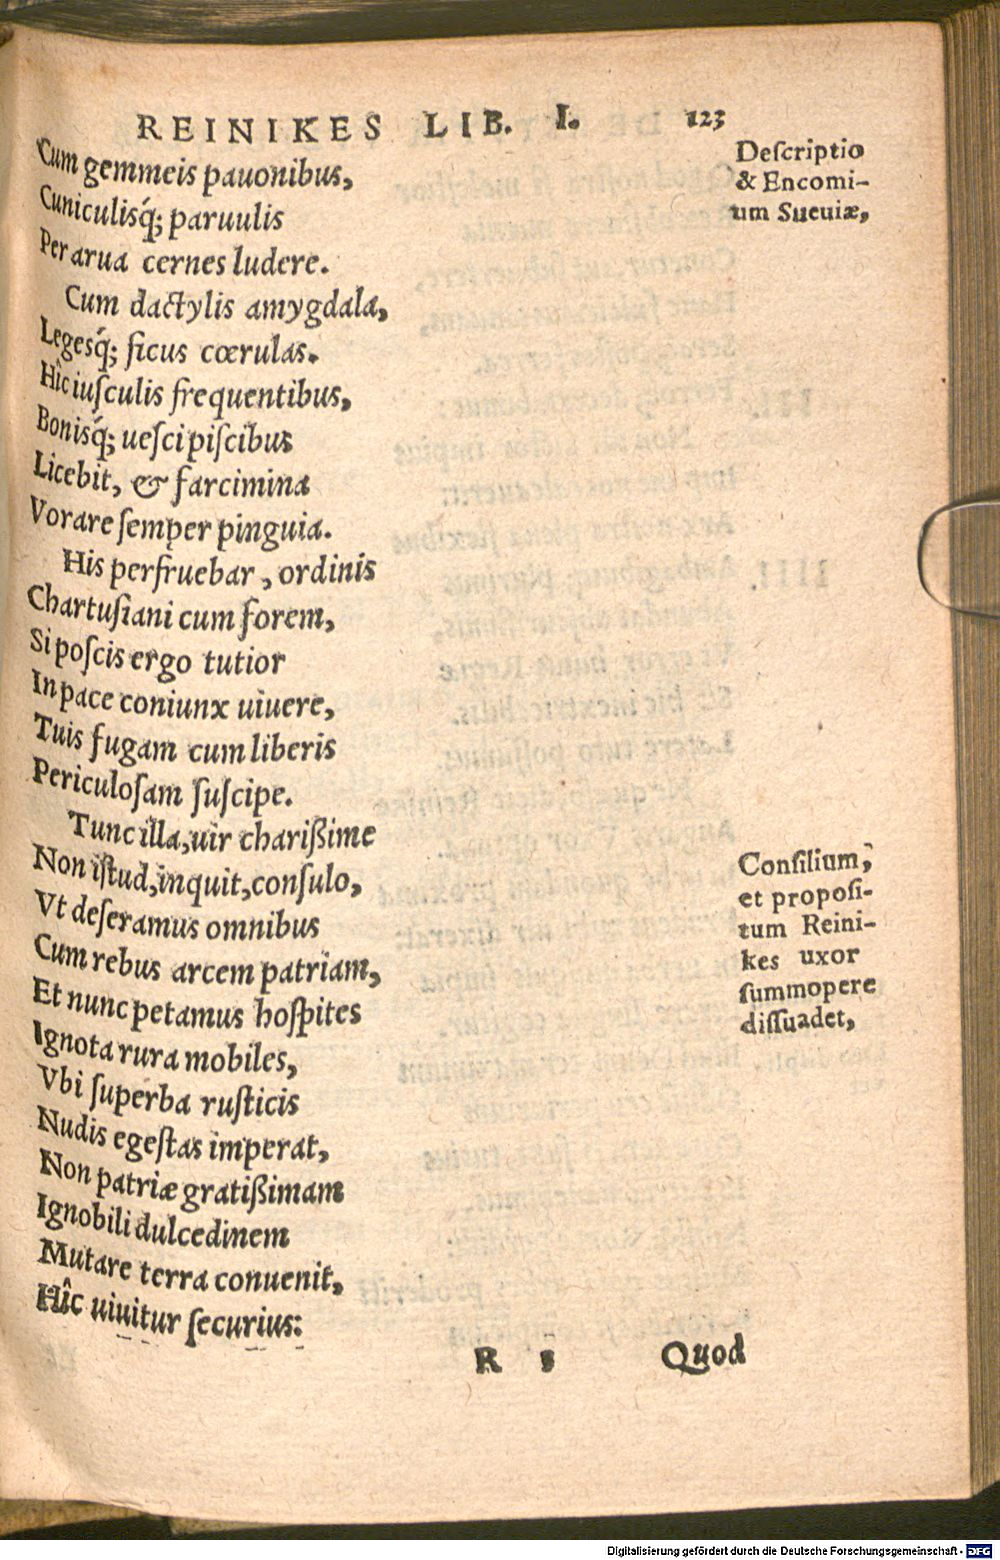 REINIKES LIB. I. 123
Cum gemmeis pauonibus,
Cuniculisq́; paruulis
Per arua cernes ludere.
Cum dactylis amygdala,
Legesq́; ficus cœrulas.
Hîc iuſculis frequentibus,
Bonisq́; ueſci piſcibus
Licebit, & farcimina
Vorare ſemper pinguia.
His perfruebar, ordinis
Chartuſiani cum forem,
Si poſcis ergo tutior
In pace coniunx uiuere,
Tuis fugam cum liberis
Periculoſam ſuſcipe.
Tunc illa, uir charißime
Non iſtud, inquit, conſulo,
Vt deſeramus omnibus
Cum rebus arcem patriam,
Et nunc petamus hoſpites
Ignota rura mobiles,
Vbi ſuperba ruſticis
Nudis egeſtas imperat,
Non patriæ gratißimam
Ignobili dulcedinem
Mutare terra conuenit,
Hîc uiuitur ſecurius:
Deſcriptio
& Encomi-
um Sueuiæ,
Conſilium,
et propoſi-
tum Reini-
kes uxor
ſummopere
diſſuadet,
R 5 Quod
Digitalisierung gefördert durch die Deutsche Forschungsgemeinschaft - DFG